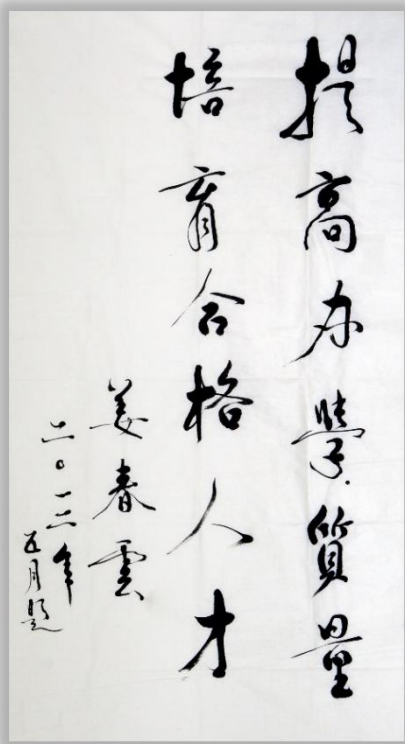 提高办學質量
培育合格人才
姜春雲
二〇一二年
五月题